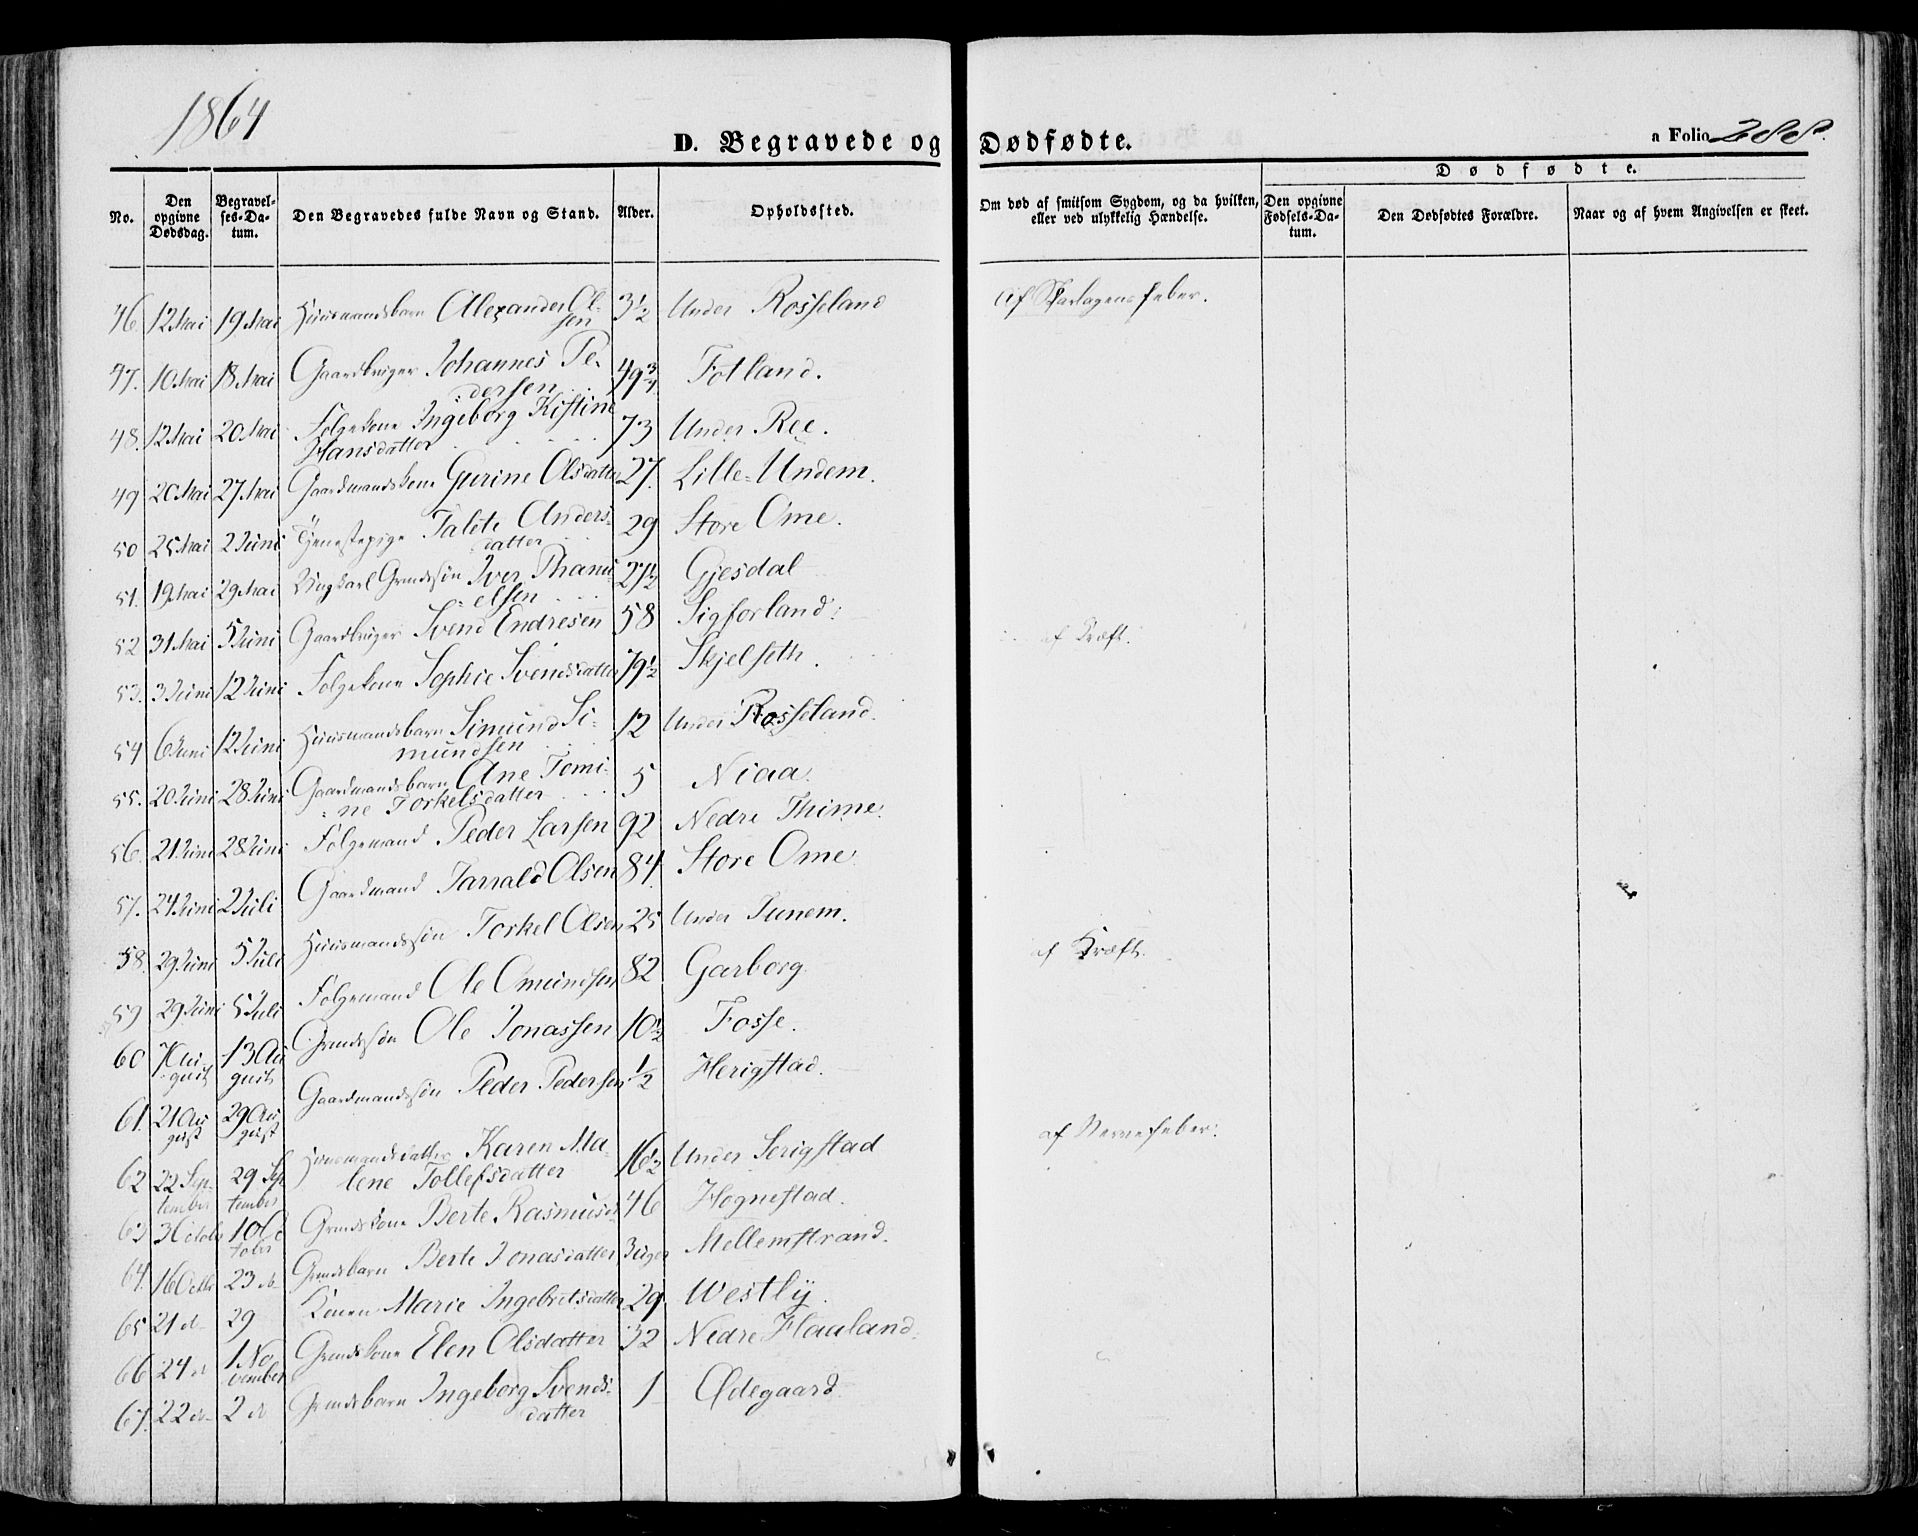 1864
D. Begravede og Dødfødte.
a Folio 288.
No.
Den opgivne Dødsdag.
Begravelses-Datum.
Den Begravedes fulde Navn og Stand.
Alder.
Opholdssted.
Om død af smitsom Sygdom, og da hvilken, eller ved ulykkelig Hændelse.
Dødfødte.
Den opgivne Fødsels-Datum.
Den Dødfødtes Forældre.
Naar og af hvem Angivelsen er skeet.
46. 12 Mai 19 Mai Huusmandsbarn Alexander Ol- 3½ Under Rosseland Af Skarlagensfeber.
sen
47. 10 Mai 18 Mai Gaardbruger Johannes Pe- 49¾ Fotland.
dersen
48. 12 Mai 20 Mai Følgekone Ingeborg Kistine 73 Under Ree.
Hansdatter
49 20 Mai 27 Mai Gaardmandskone Gurine Olsdatter 27. Lille-Undem.
50 25 Mai 2 Juni Tjenestepige Talete Anders- 29 Store Ome.
datter
51. 19 Mai 29 Mai Ungkarl Grmdssøn Iver Thani- 27½ Gjesdal
elsen
52 31 Mai 5 Juni Gaardbruger Svend Endresen 58 Sigforland: af Kræft.
53. 3 Juni 12 Juni Følgekone Sophie Svendsdatter 79½ Skjelseth.
54 6 Juni 12 Juni Huusmandsbarn Simund Si- 12 Under Rosseland.
mundsen
55. 20 Juni 28 Juni Gaardmandsbarn Ane Tomi- 5 Niaa.
ne Torkelsdatter
56. 21 Juni 28 Juni Følgemand Peder Larsen 92 Nedre Thime.
57. 24 Juni 2 Juli Gaardmand Tarrald Olsen 84. Store Ome.
58. 29 Juni 5 Juli Huusmandssøn Torkel Olsen 25 Under Tunem. af Kræft.
59 29 Juni 5 Juli Følgemand Ole Omundsen 82 Garborg.
60 7 Au- 13 Au- Grmdssøn Ole Jonassen 10½ Fosse.
gust gust
61. 21 Au- 29 Au- Gaardmandssøn Peder Pedersen ½ Herigstad.
gust gust
62 22 Sep- 29 Sep- Huusmandsdatter Karen Ma- 16½ Under Serigstad af Nervefeber.
tember tember lene Tollefsdatter
63 3 Octob 10 Oc- Grmdskone Berte Rasmusd. 46 Hognestad.
tober
64. 16 Octbr 23 do Grmdsbarn Berte Jonasdatter 3 uger Mellemstrand.
65 21 do 29 Konen Marie Ingebretsdatter 29. Westly.
66 24 do 1 No- Grmdskone Elen Olsdatter 32 Nedre Haaland.
vember
67. 22 do 2 do Grmdsbarn Ingeborg Svends- 1 Ødegaard.
datter